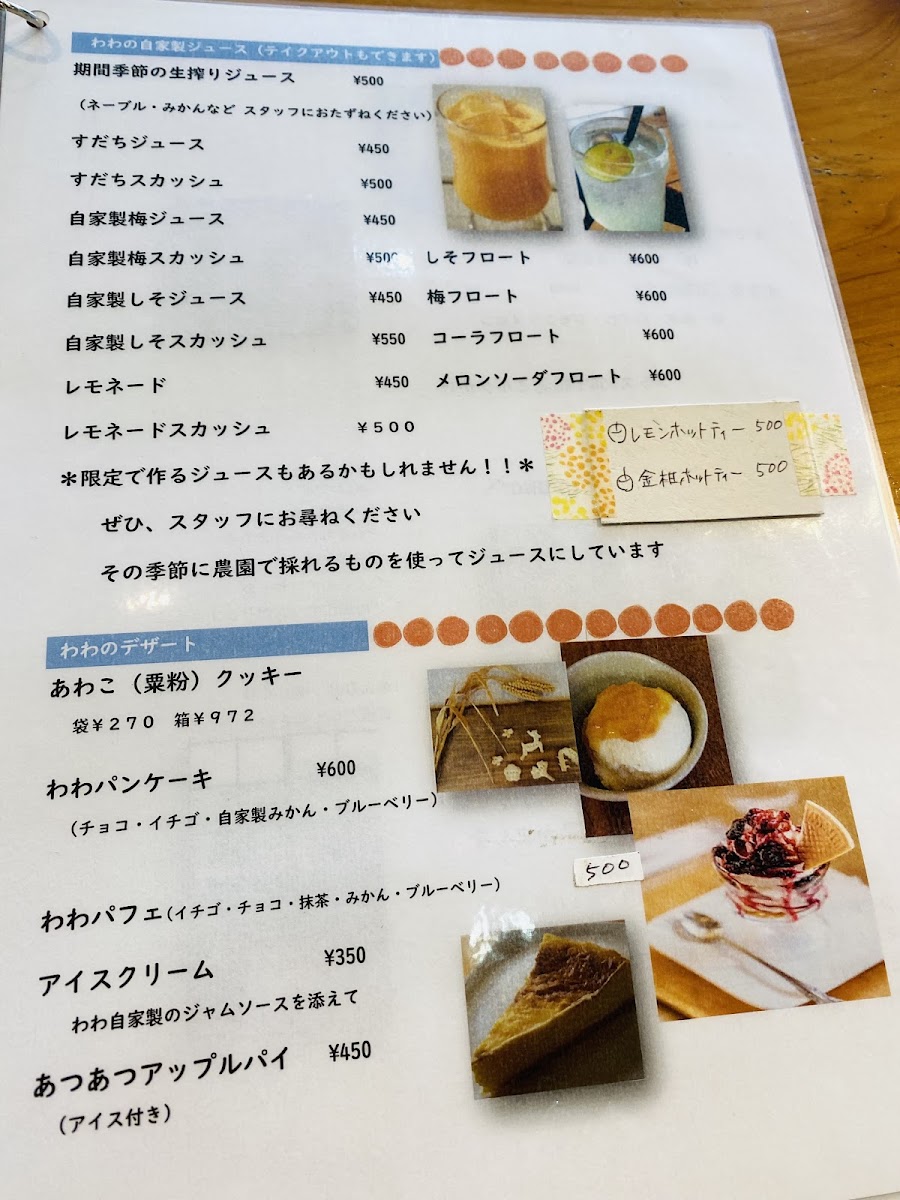 わわの自家製ジュース（テイクアウトもできます）
期間季節の生搾りジュース ¥500
（ネーブル・みかんなど スタッフにおたずねください）
すだちジュース ¥450
すだちスカッシュ ¥500
自家製梅ジュース ¥450
自家製梅スカッシュ ¥500 しそフロート ¥600
自家製しそジュース ¥450 梅フロート ¥600
自家製しそスカッシュ ¥550 コーラフロート ¥600
レモネード ¥450 メロンソーダフロート ¥600
レモネードスカッシュ ￥５００
レモンホットティー 500
金柑ホットティー 500
＊限定で作るジュースもあるかもしれません！！＊
ぜひ、スタッフにお尋ねください
その季節に農園で採れるものを使ってジュースにしています
わわのデザート
あわこ（粟粉）クッキー
袋￥２７０ 箱￥９７２
わわパンケーキ ¥600
（チョコ・イチゴ・自家製みかん・ブルーベリー）
わわパフェ（イチゴ・チョコ・抹茶・みかん・ブルーベリー） 500
アイスクリーム ¥350
わわ自家製のジャムソースを添えて
あつあつアップルパイ ¥450
（アイス付き）